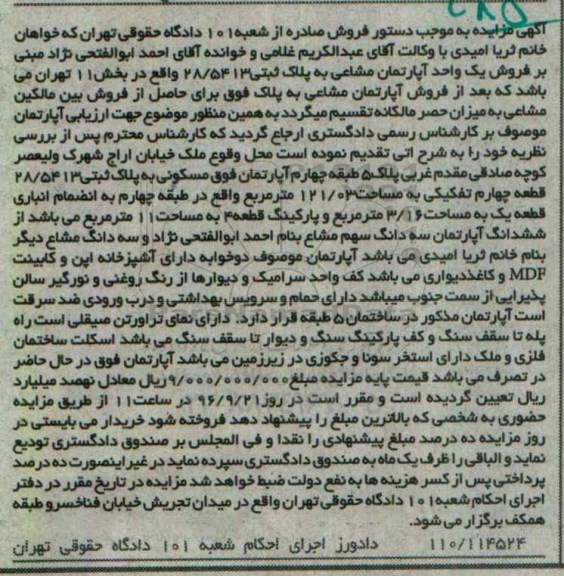 آگهی مزایده به موجب دستور فروش صادره از شعبه۱۰۱ دادگاه حقوقی تهران که خواهان
خانم ثریا امیدی با وکالت آقای عبدالکریم غلامی و خوانده آقای احمد ابوالفتحی نژاد مبنی
بر فروش یک واحد آپارتمان مشاعی به پلاک ثبتی۲۸/۵۴۱۳ واقع در بخش۱۱ تهران می
باشد که بعد از فروش آپارتمان مشاعی به پلاک فوق برای حاصل از فروش بین مالکین
مشاعی به میزان حصر مالکانه تقسیم میگردد به همین منظور موضوع جهت ارزیابی آپارتمان
موصوف بر کارشناس رسمی دادگستری ارجاع گردید که کارشناس محترم پس از بررسی
نظریه خود را به شرح اتی تقدیم نموده است محل وقوع ملک خیابان اراج شهرک ولیعصر
کوچه صادقی مقدم غربی پلاک۵ طبقه چهارم آپارتمان فوق مسکونی به پلاک ثبتی۲۸/۵۴۱۳
قطعه چهارم تفکیکی به مساحت۱۲۱/۰۳ مترمربع واقع در طبقه چهارم به انضمام انباری
قطعه یک به مساحت ۳/۱۶ مترمربع و پارکینگ قطعه۴ به مساحت۱۱ مترمربع می باشد از
ششدانگ آپارتمان سه دانگ سهم مشاع بنام احمد ابوالفتحی نژاد و سه دانگ مشاع دیگر
بنام خانم ثریا امیدی می باشد آپارتمان موصوف دوخوابه دارای آشپزخانه اپن و کابینت
MDF و کاغذدیواری می باشد کف واحد سرامیک و دیوارها از رنگ روغنی و نورگیر سالن
پذیرایی از سمت جنوب میباشد دارای حمام و سرویس بهداشتی و درب ورودی ضد سرقت
است آپارتمان مذکور در ساختمان ۵ طبقه قرار دارد. دارای نمای تراورتن صیقلی است راه
پله تا سقف سنگ و کف پارکینگ سنگ و دیوار تا سقف سنگ می باشد اسکلت ساختمان
فلزی و ملک دارای استخر سونا و جکوزی در زیرزمین می باشد آپارتمان فوق در حال حاضر
در تصرف می باشد قیمت پایه مزایده مبلغ۹/۰۰۰/۰۰۰/۰۰۰ریال معادل نهصد میلیارد
ریال تعیین گردیده است و مقرر است در روز۹۶/۹/۲۱ در ساعت۱۱ از طریق مزایده
حضوری به شخصی که بالاترین مبلغ را پیشنهاد دهد فروخته شود خریدار می بایستی در
روز مزایده ده درصد مبلغ پیشنهادی را نقدا و فی المجلس بر صندوق دادگستری تودیع
نماید و الباقی را ظرف یک ماه به صندوق دادگستری سپرده نماید در غیر اینصورت ده درصد
پرداختی پس از کسر هزینه ها به نفع دولت ضبط خواهد شد مزایده در تاریخ مقرر در دفتر
اجرای احکام شعبه۱۰۱ دادگاه حقوقی تهران واقع در میدان تجریش خیابان فناخسرو طبقه
همکف برگزار می شود.
۱۱۰/۱۱۴۵۲۴ دادورز اجرای احکام شعبه ۱۰۱ دادگاه حقوقی تهران